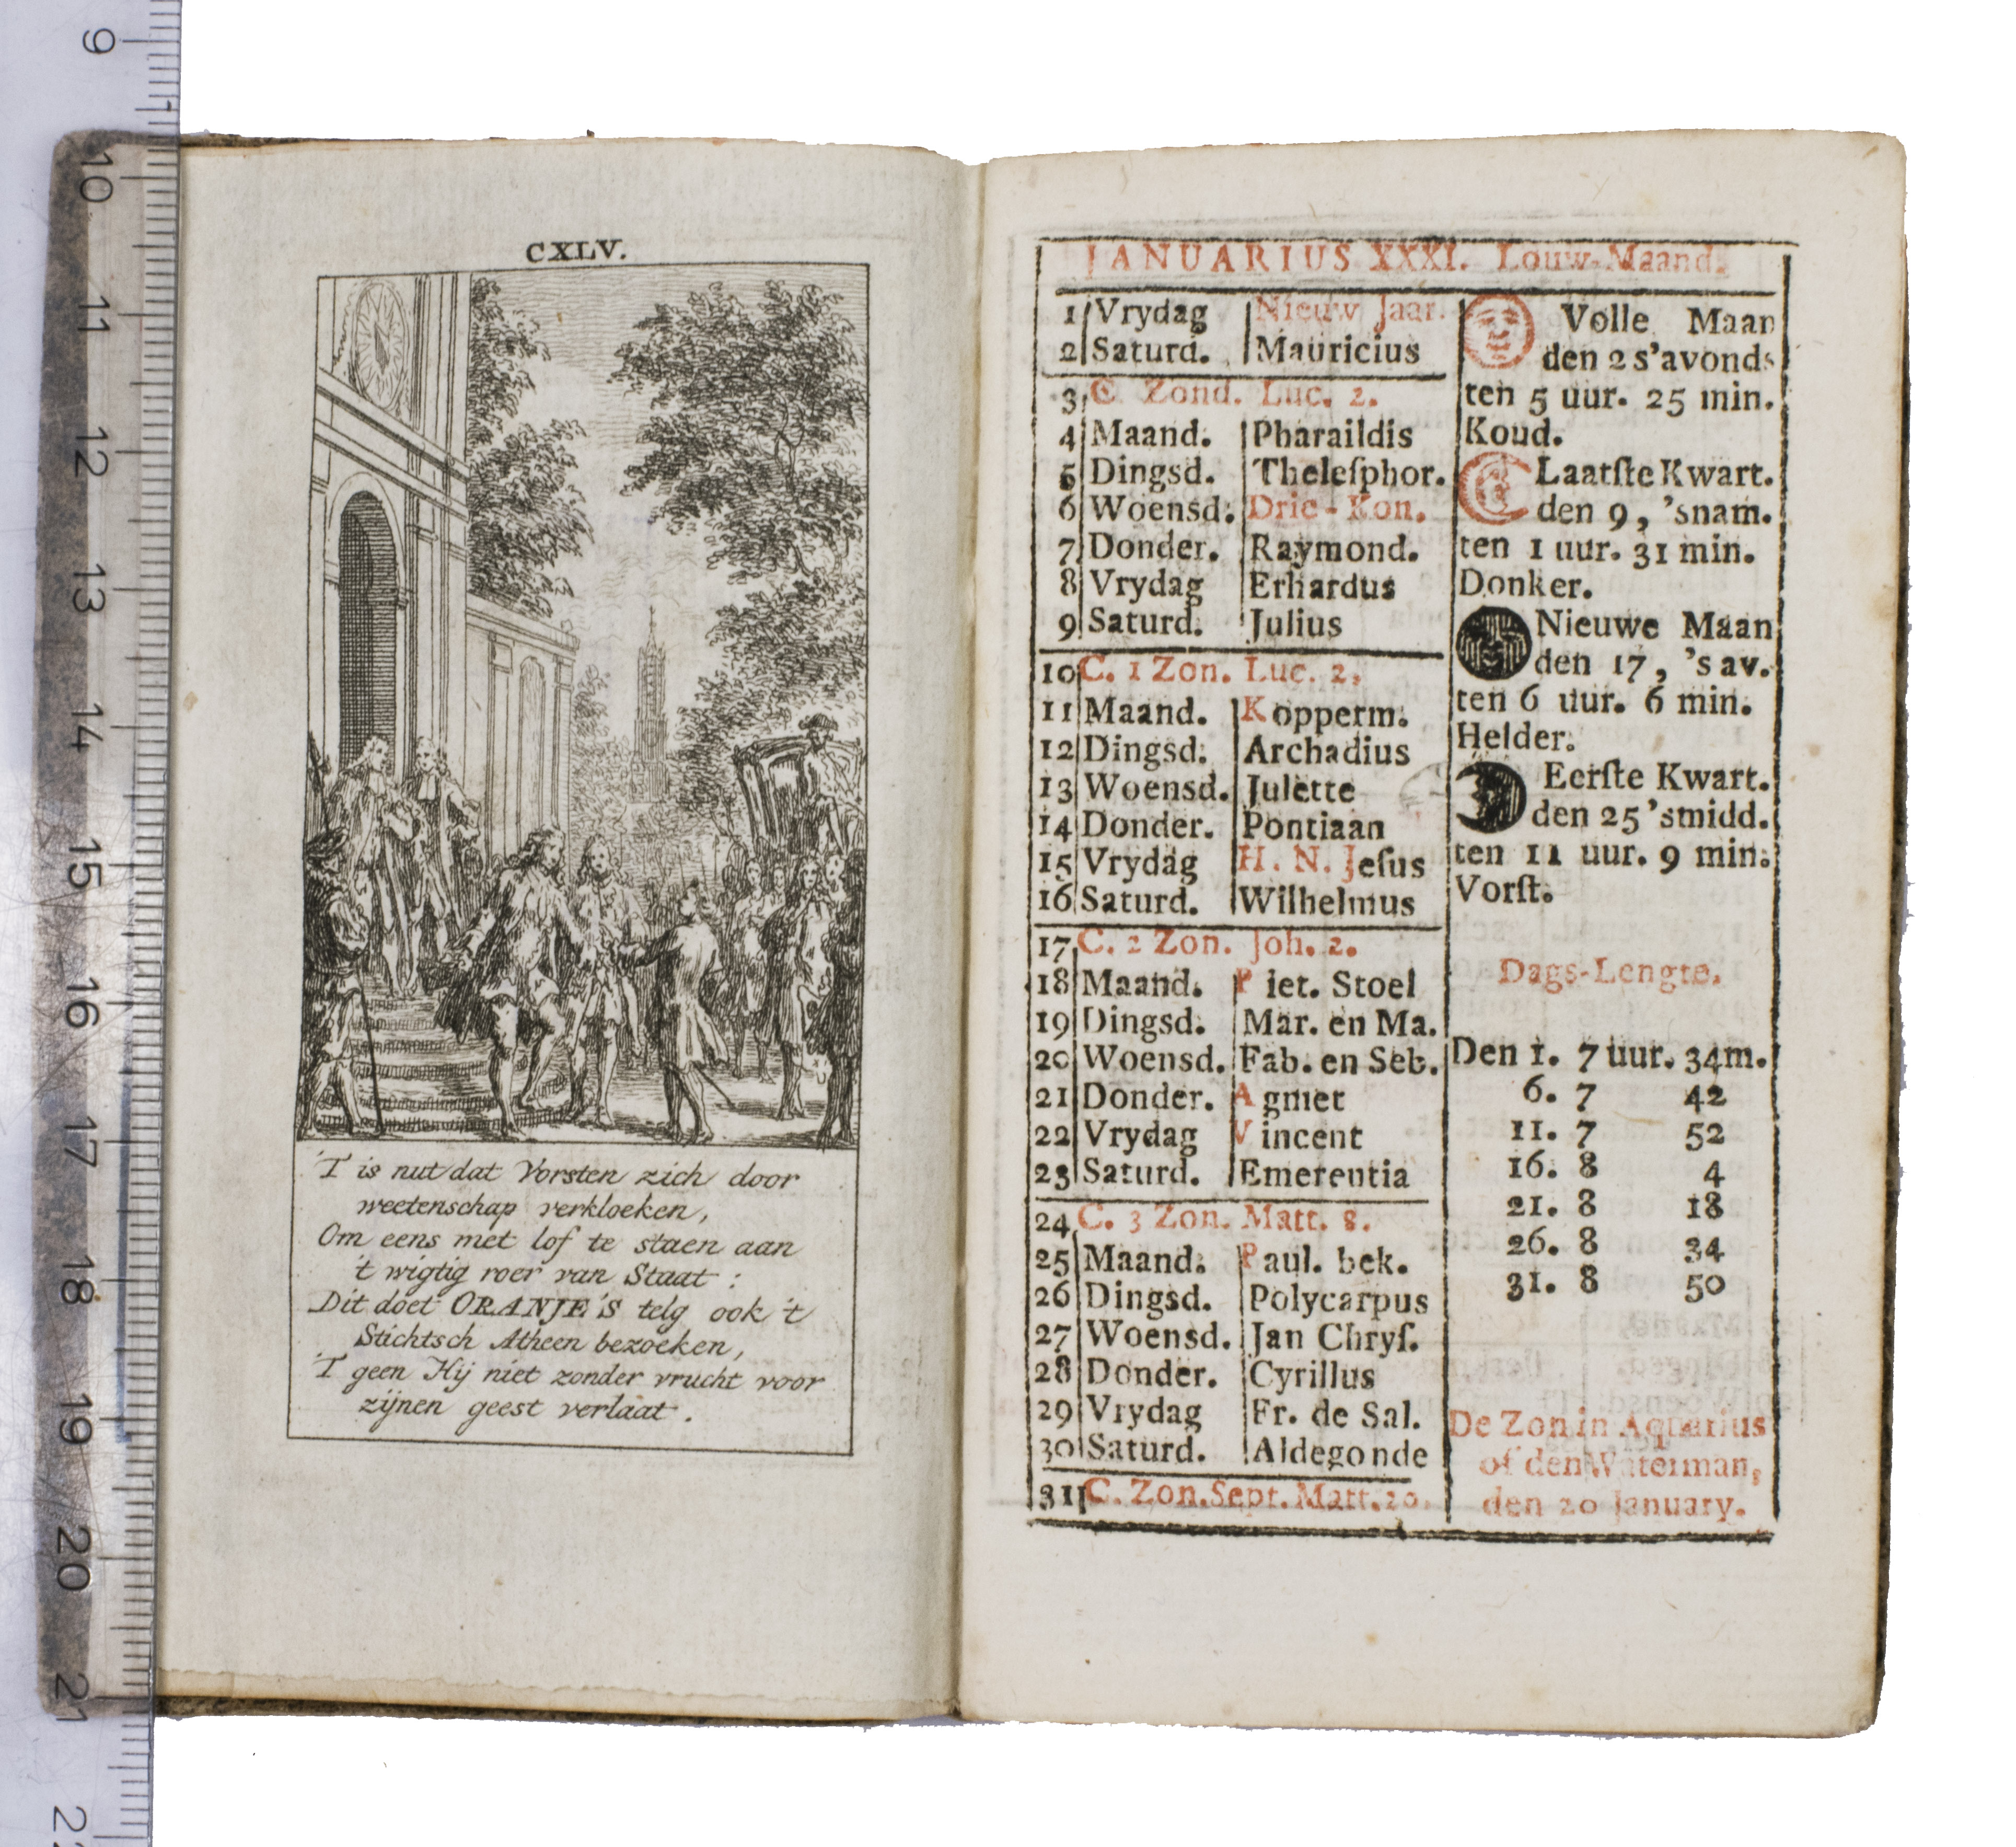 9
10
11
12
13
14
15
16
17
18
19
20
21
CXLV.
'T is nut dat Vorsten zich door
weetenschap verkloeken,
Om eens met lof te staen aan
't wigtig roer van Staat :
Dit doet ORANJE'S telg ook 't
Stichtsch Atheen bezoeken,
'T geen Hij niet zonder vrucht voor
zijnen geest verlaat.
JANUARIUS XXXI. Louw-Maand.
1 Vrydag Nieuw Jaar.
2 Saturd. Mauricius
3 C. Zond. Luc. 2.
4 Maand. Pharaildis
5 Dingsd. Theleſphor.
6 Woensd. Drie-Kon.
7 Donder. Raymond.
8 Vrydag Erhardus
9 Saturd. Julius
10 C. 1 Zon. Luc. 2.
11 Maand. Kopperm.
12 Dingsd. Archadius
13 Woensd. Julette
14 Donder. Pontiaan
15 Vrydag H. N. Jeſus
16 Saturd. Wilhelmus
17 C. 2 Zon. Joh. 2.
18 Maand. Piet. Stoel
19 Dingsd. Mar. en Ma.
20 Woensd. Fab. en Seb.
21 Donder. Agniet
22 Vrydag Vincent
23 Saturd. Emerentia
24 C. 3 Zon. Matt. 8.
25 Maand. Paul. bek.
26 Dingsd. Polycarpus
27 Woensd. Jan Chryſ.
28 Donder. Cyrillus
29 Vrydag Fr. de Sal.
30 Saturd. Aldegonde
31 C. Zon. Sept. Matt. 20.
Volle Maan
den 2 s'avonds
ten 5 uur. 25 min.
Koud.
Laatſte Kwart.
den 9, 'snam.
ten 1 uur. 31 min.
Donker.
Nieuwe Maan
den 17, 's av.
ten 6 uur. 6 min.
Helder.
Eerſte Kwart.
den 25 'smidd.
ten 11 uur. 9 min.
Vorſt.
Dags-Lengte.
Den 1. 7 uur. 34 m.
6. 7 42
11. 7 52
16. 8 4
21. 8 18
26. 8 34
31. 8 50
De Zon in Aquarius
of den Waterman,
den 20 January.